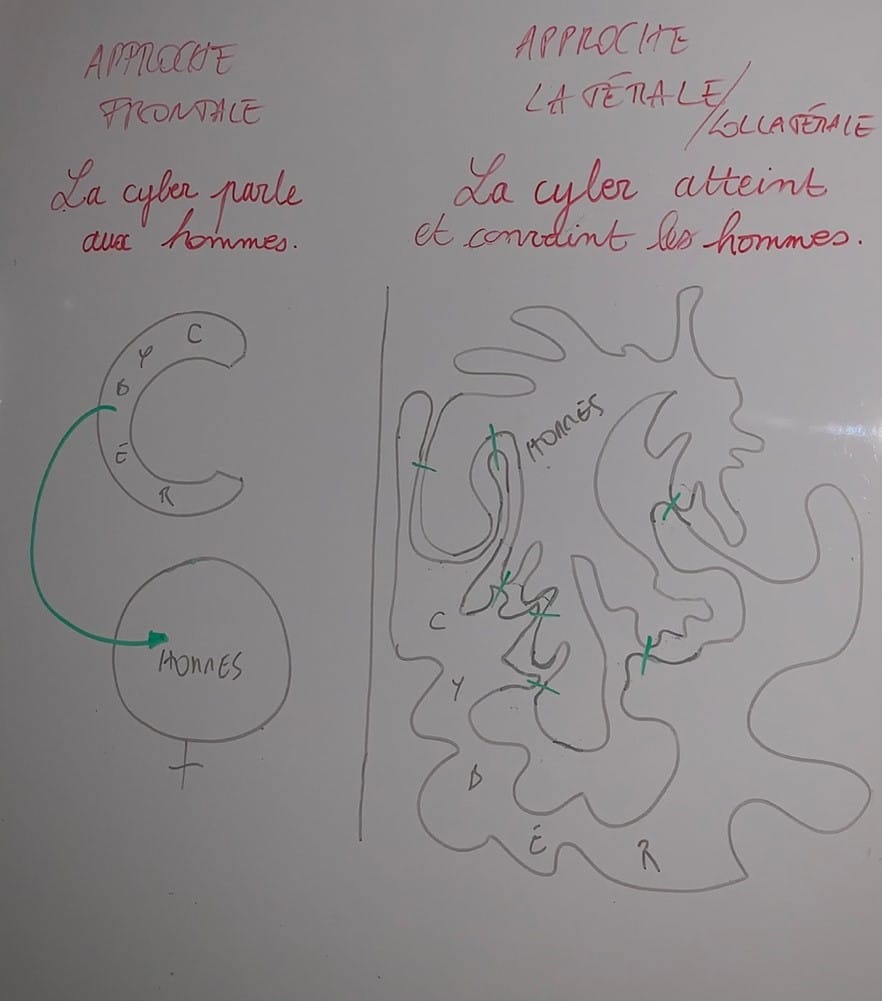 APPROCHE
FRONTALE
La cyber parle
aux hommes.
C
Y
B
É
R
HOMMES
APPROCHE
LATÉRALE/
/COLLATÉRALE
La cyber atteint
et les hommes.
HOMMES
C
Y
B
É
R